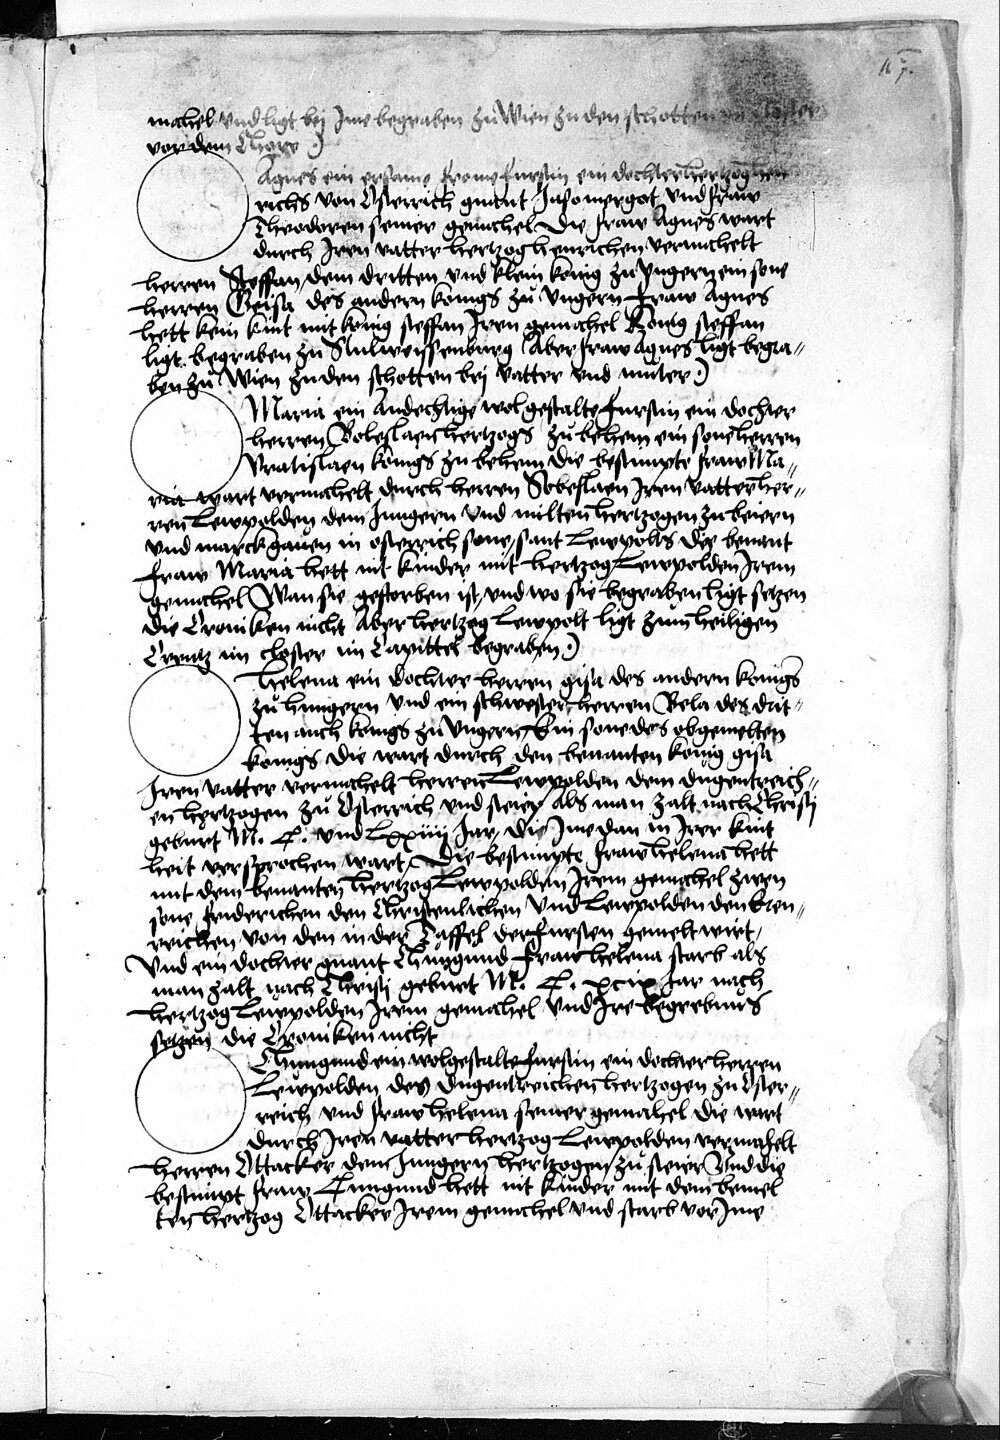 machel und ligt bej Ime begraben zu Wien zu den schotten im closter
vor dem Chore :)
Agnes ein ersame frome furstin ein dochter hertzog hein
richs von Osterrich gnant Jasomergot und fraw
Theodoren seiner gemachel Die fraw Agnes wart
durch Iren vatter hertzog henrichen vermehelt
herren Steffan dem dritten und klein konig zu Ungern ein sone
herren Geisa des andern konigs zu Ungern fraw Agnes
hett kein kint mit konig steffan Iren gemachel Konig steffan
ligt begraben zu Stulweyssenburg Aber fraw Agnes ligt begra-
ben zu Wien zu den schotten bei vatter und muter :)
Maria ein Andechtige wolgestalte furstin ein dochter
herren Boleslaen hertzogs zu behem ein sone herren
Vratislaen konigs zu behem die bestimpte fraw Ma-
ria wart vermachelt durch herren Sobeslaen Iren vatter her-
ren Lewpolden dem Jungern und milten hertzogen zu beiern
und marckgauen in osterrich sone sant Lewpolts die benant
fraw Maria hett nit kinder mit hertzog Lewpolden Irem
gemachel Wan sie gestorben ist und wo sie begraben ligt setzen
die Croniken nicht Aber hertzog Lewpolt ligt zum heiligen
Creutz im closter im Capittel begraben :)
Helena ein dochter herren gisa des andern konigs
zu hungern und ein schwester herren Bela des drit-
ten auch konigs zu Ungern Ein sone des obgemelten
konigs die wart durch den benanten konig gisa
Iren vatter vermachelt herren Lewpolden dem dugentreich-
en hertzogen zu Osterrich und steier Als man zalt nach Christi
geburt M. C. und Lxxiiii Jar die Ime dan in Irer kint
heit versprochen wart Die bestimpte fraw helena hett
mit dem benanten hertzog Lewpolden Irem gemachel zwen
sone friderichen den Christenlichen Und Lewpolden den Eren-
reichen von den in der Taffel der fursten gemelt wirt
Und ein dochter gnant Chunigund fraw helena starb als
man zalt nach Christj geburt M. C. xcix Jar nach
hertzog Lewpolden Irem gemachel und Ire begrebnus
setzen die Croniken nicht
Chunigund ein wolgestalte furstin ein dochter herren
Lewpolden des dugentreichen hertzogen zu Oster-
reich und fraw helena seiner gemahel die wart
durch Iren vatter hertzog Lewpolden vermahelt
herren Ottacker dem Jungern hertzogen zu steier Und die
bestimpt fraw Cunigund hett nit kinder mit dem bemel
ten hertzog Ottacker Irem gemachel und starb vor Ime